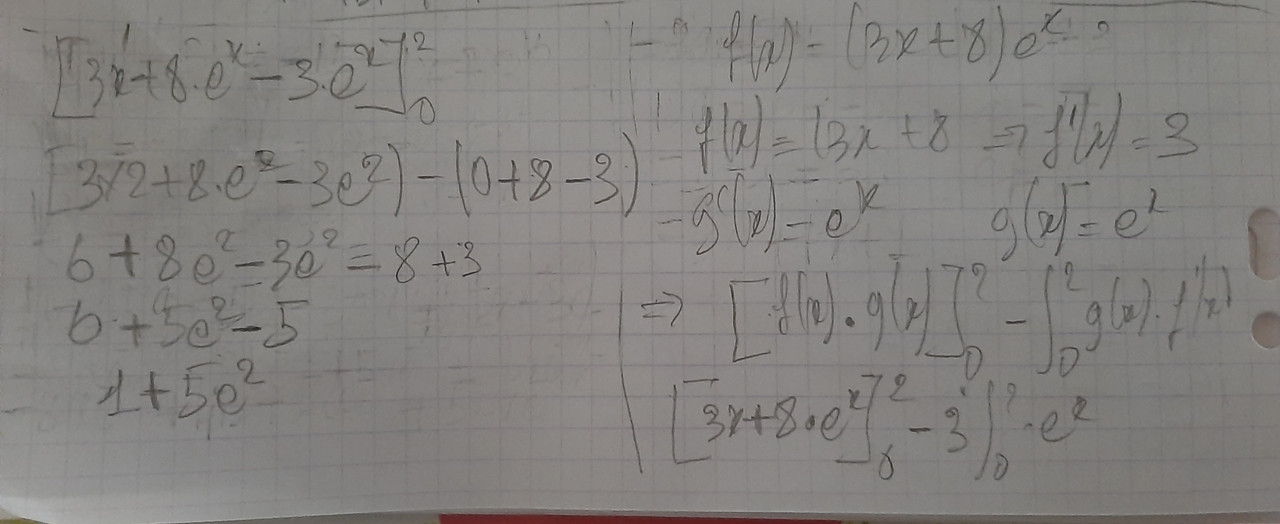 [3x+8·eˣ−3·eˣ]₀²
[3×2+8·e²−3e²)−(0+8−3)
6+8e²−3e²=8+3
6+5e²−5
1+5e²
f(x)−(3x+8)eˣ
f(x)=(3x+8 ⇒ f'(x)=3
−g'(x)=eˣ g(x)=eˣ
⇒ [f(x)·g(x)]₀² − ∫₀² g(x)·f'(x)
[3x+8·eˣ]₀² −3∫₀² ·eˣ